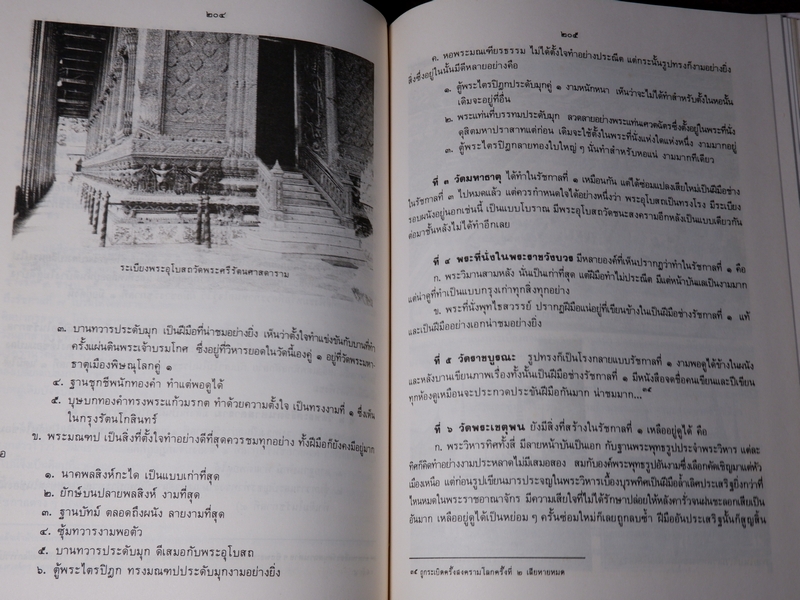 ๒๐๔
ระเบียงพระอุโบสถวัดพระศรีรัตนศาสดาราม
๓. บานทวารประดับมุก เป็นฝีมือที่น่าชมอย่างยิ่ง เห็นว่าตั้งใจทำแข่งขันกับบานที่ทำ
ครั้งแผ่นดินพระเจ้าบรมโกศ ซึ่งอยู่ที่วิหารยอดในวัดนี้เองคู่ ๑ อยู่ที่วัดพระมหา-
ธาตุเมืองพิษณุโลกคู่ ๑
๔. ฐานชุกชีพนักทองคำ ทำแต่พอดูได้
๕. บุษบกทองคำทรงพระแก้วมรกต ทำด้วยความตั้งใจ เป็นทรงงามที่ ๑ ซึ่งเห็น
ในกรุงรัตนโกสินทร์
ข. พระมณฑป เป็นสิ่งที่ตั้งใจทำอย่างดีที่สุดควรชมทุกอย่าง ทั้งฝีมือก็ยังคงมีอยู่มาก
อ
๑. นาคพลสิงห์กะได เป็นแบบเก่าที่สุด
๒. ยักษ์บนปลายพลสิงห์ งามที่สุด
๓. ฐานบัทม์ ตลอดถึงผนัง ลายงามที่สุด
๔. ซุ้มทวารงามพอตัว
๕. บานทวารประดับมุก ดีเสมอกับพระอุโบสถ
๖. ตู้พระไตรปิฎก ทรงมณฑปประดับมุกงามอย่างยิ่ง
๒๐๕
ค. หอพระมณเฑียรธรรม ไม่ได้ตั้งใจทำอย่างประณีต แต่กระนั้นรูปทรงก็งามอย่างยิ่ง
สิ่งซึ่งอยู่ในนั้นมีดีหลายอย่างคือ
๑. ตู้พระไตรปิฎกประดับมุกคู่ ๑ งามหนักหนา เห็นว่าจะไม่ได้ทำสำหรับตั้งในหอนั้น
เดิมจะอยู่ที่อื่น
๒. พระแท่นที่บรรทมประดับมุก ลวดลายอย่างพระแท่นเศวตฉัตรซึ่งตั้งอยู่ในพระที่นั่ง
ดุสิตมหาปราสาทแต่ก่อน เดิมจะใช้ตั้งในพระที่นั่งแห่งใดแห่งหนึ่ง งามมากอยู่
๓. ตู้พระไตรปิฎกลายทองใบใหญ่ ๆ นั่นทำสำหรับหอแน่ งามมากทีเดียว
ที่ ๓ วัดมหาธาตุ ได้ทำในรัชกาลที่ ๑ เหมือนกัน แต่ได้ซ่อมแปลงเสียใหม่เป็นฝีมือช่าง
ในรัชกาลที่ ๓ ไปหมดแล้ว แต่ควรกำหนดใจได้อย่างหนึ่งว่า พระอุโบสถเป็นทรงโรง มีระเบียง
รอบผนังอยู่นอกเช่นนี้ เป็นแบบโบราณ มีพระอุโบสถวัดชนะสงครามอีกหลังเป็นแบบเดียวกัน
ต่อมาชั้นหลังไม่ได้ทำอีกเลย
ที่ ๔ พระที่นั่งในพระราชวังบวร มีหลายองค์ที่เห็นปรากฏว่าทำในรัชกาลที่ ๑ คือ
ก. พระวิมานสามหลัง นั่นเป็นเก่าที่สุด แต่ฝีมือทำไม่ประณีต มีแต่หน้าบันแลเป็นงามมาก
แต่น่าดูที่ทำเป็นแบบกรุงเก่าทุกสิ่งทุกอย่าง
ข. พระที่นั่งพุทไธสวรรย์ ปรากฏฝีมือแน่อยู่ที่เขียนข้างในเป็นฝีมือช่างรัชกาลที่ ๑ แท้
และเป็นฝีมืออย่างเอกน่าชมอย่างยิ่ง
ที่ ๕ วัดราชบูรณะ รูปทรงก็เป็นโรงกลายแบบรัชกาลที่ ๑ งามพอดูได้ข้างในผนัง
และหลังบานเขียนภาพเรื่องทั้งนั้นเป็นฝีมือช่างรัชกาลที่ ๑ มีหนังสือจดชื่อคนเขียนและปีเขียน
ทุกห้องดูเหมือนจะประกวดประชันฝีมือกันมาก น่าชมมาก...๑๕
ที่ ๖ วัดพระเชตุพน ยังมีสิ่งที่สร้างในรัชกาลที่ ๑ เหลืออยู่ดูได้ คือ
ก. พระวิหารทิศทั้งสี่ มีลายหน้าบันเป็นเอก กับฐานพระพุทธรูปประจำพระวิหาร แต่ละ
ทิศก็คิดทำอย่างงามประหลาดไม่มีเสมอสอง สมกับองค์พระพุทธรูปอันงามซึ่งเลือกคัดเชิญมาแต่หัว
เมืองเหนือ แต่ก่อนรูปเขียนมารประจญในพระวิหารเบื้องบุรพทิศเป็นฝีมือล้ำเลิศประเสริฐยิ่งกว่าที่
ไหนหมดในพระราชอาณาจักร มีความเสียใจที่ไม่ได้รักษาปล่อยให้หลังคารั่วจนฝนชะลอกเสียเป็น
อันมาก เหลืออยู่ดูได้เป็นหย่อม ๆ ครั้นซ่อมใหม่ก็เลยถูกลบซ้ำ ฝีมืออันประเสริฐนั้นก็สูญสิ้น
๑๕ ถูกระเบิดครั้งสงครามโลกครั้งที่ ๒ เสียหายหมด